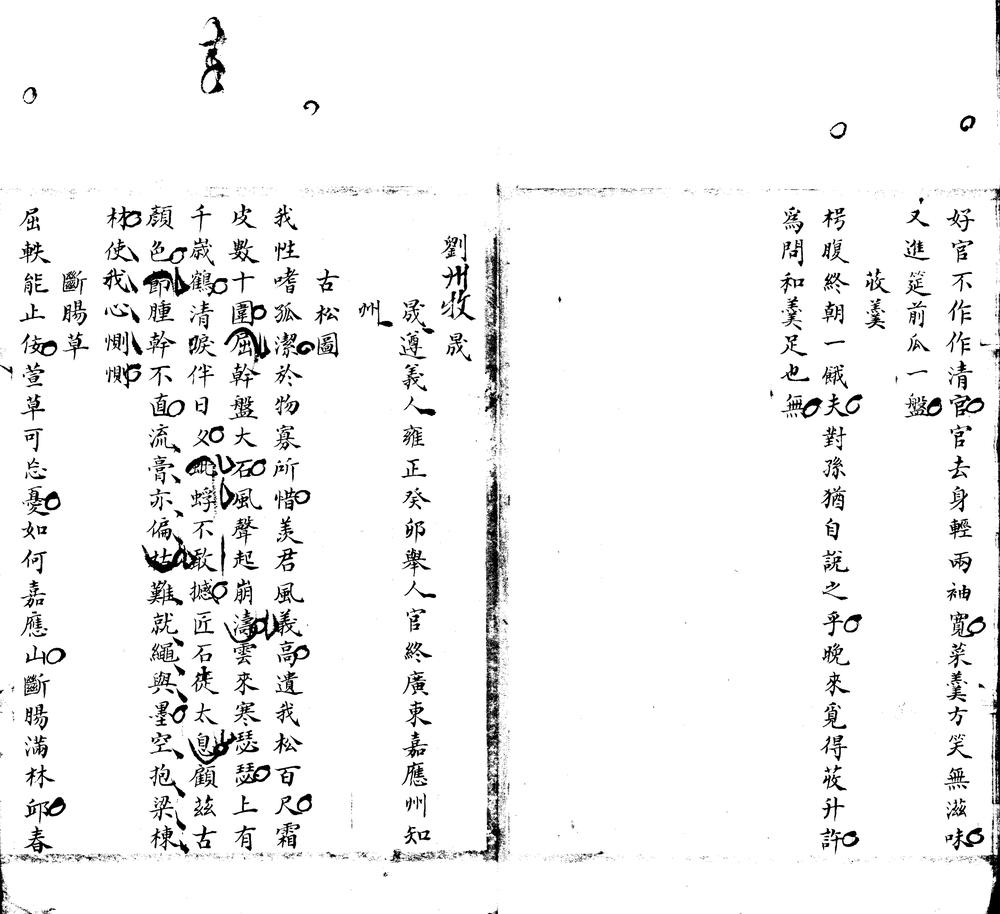 好官不作作清官官去身輕兩袖寬菜羹方笑無滋味
又進筵前瓜一盤
莜羹
枵腹終朝一餓夫對孫猶自說之乎晚來覓得莜升許
爲問和羹足也無
劉州牧晟
晟遵義人雍正癸卯舉人官終廣東嘉應州知
州
古松圖
我性嗜孤潔於物寡所惜羨君風義高遺我松百尺霜
皮數十圍屈幹盤大石風聲起崩濤雲來寒瑟瑟上有
千歲鶴清唳伴日夕蚍蜉不敢撼匠石徒太息顧茲古
顏色節腫幹不直流膏亦偏枯難就繩與墨空抱梁棟
材使我心惻惻
斷腸草
屈軼能止佞萱草可忘憂如何嘉應山斷腸滿林邱春